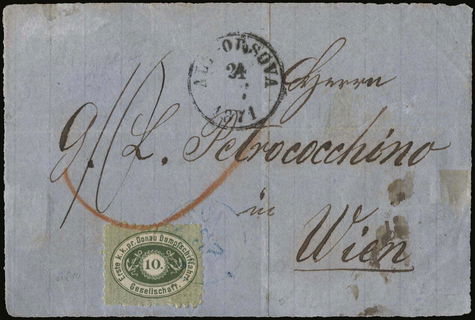 ALT-ORSOVA
24
7
1871
Herrn
L. Petrococchino
in
Wien
Erste k.k. pr. Donau Dampfschiffahrt
10.
Gesellschaft.